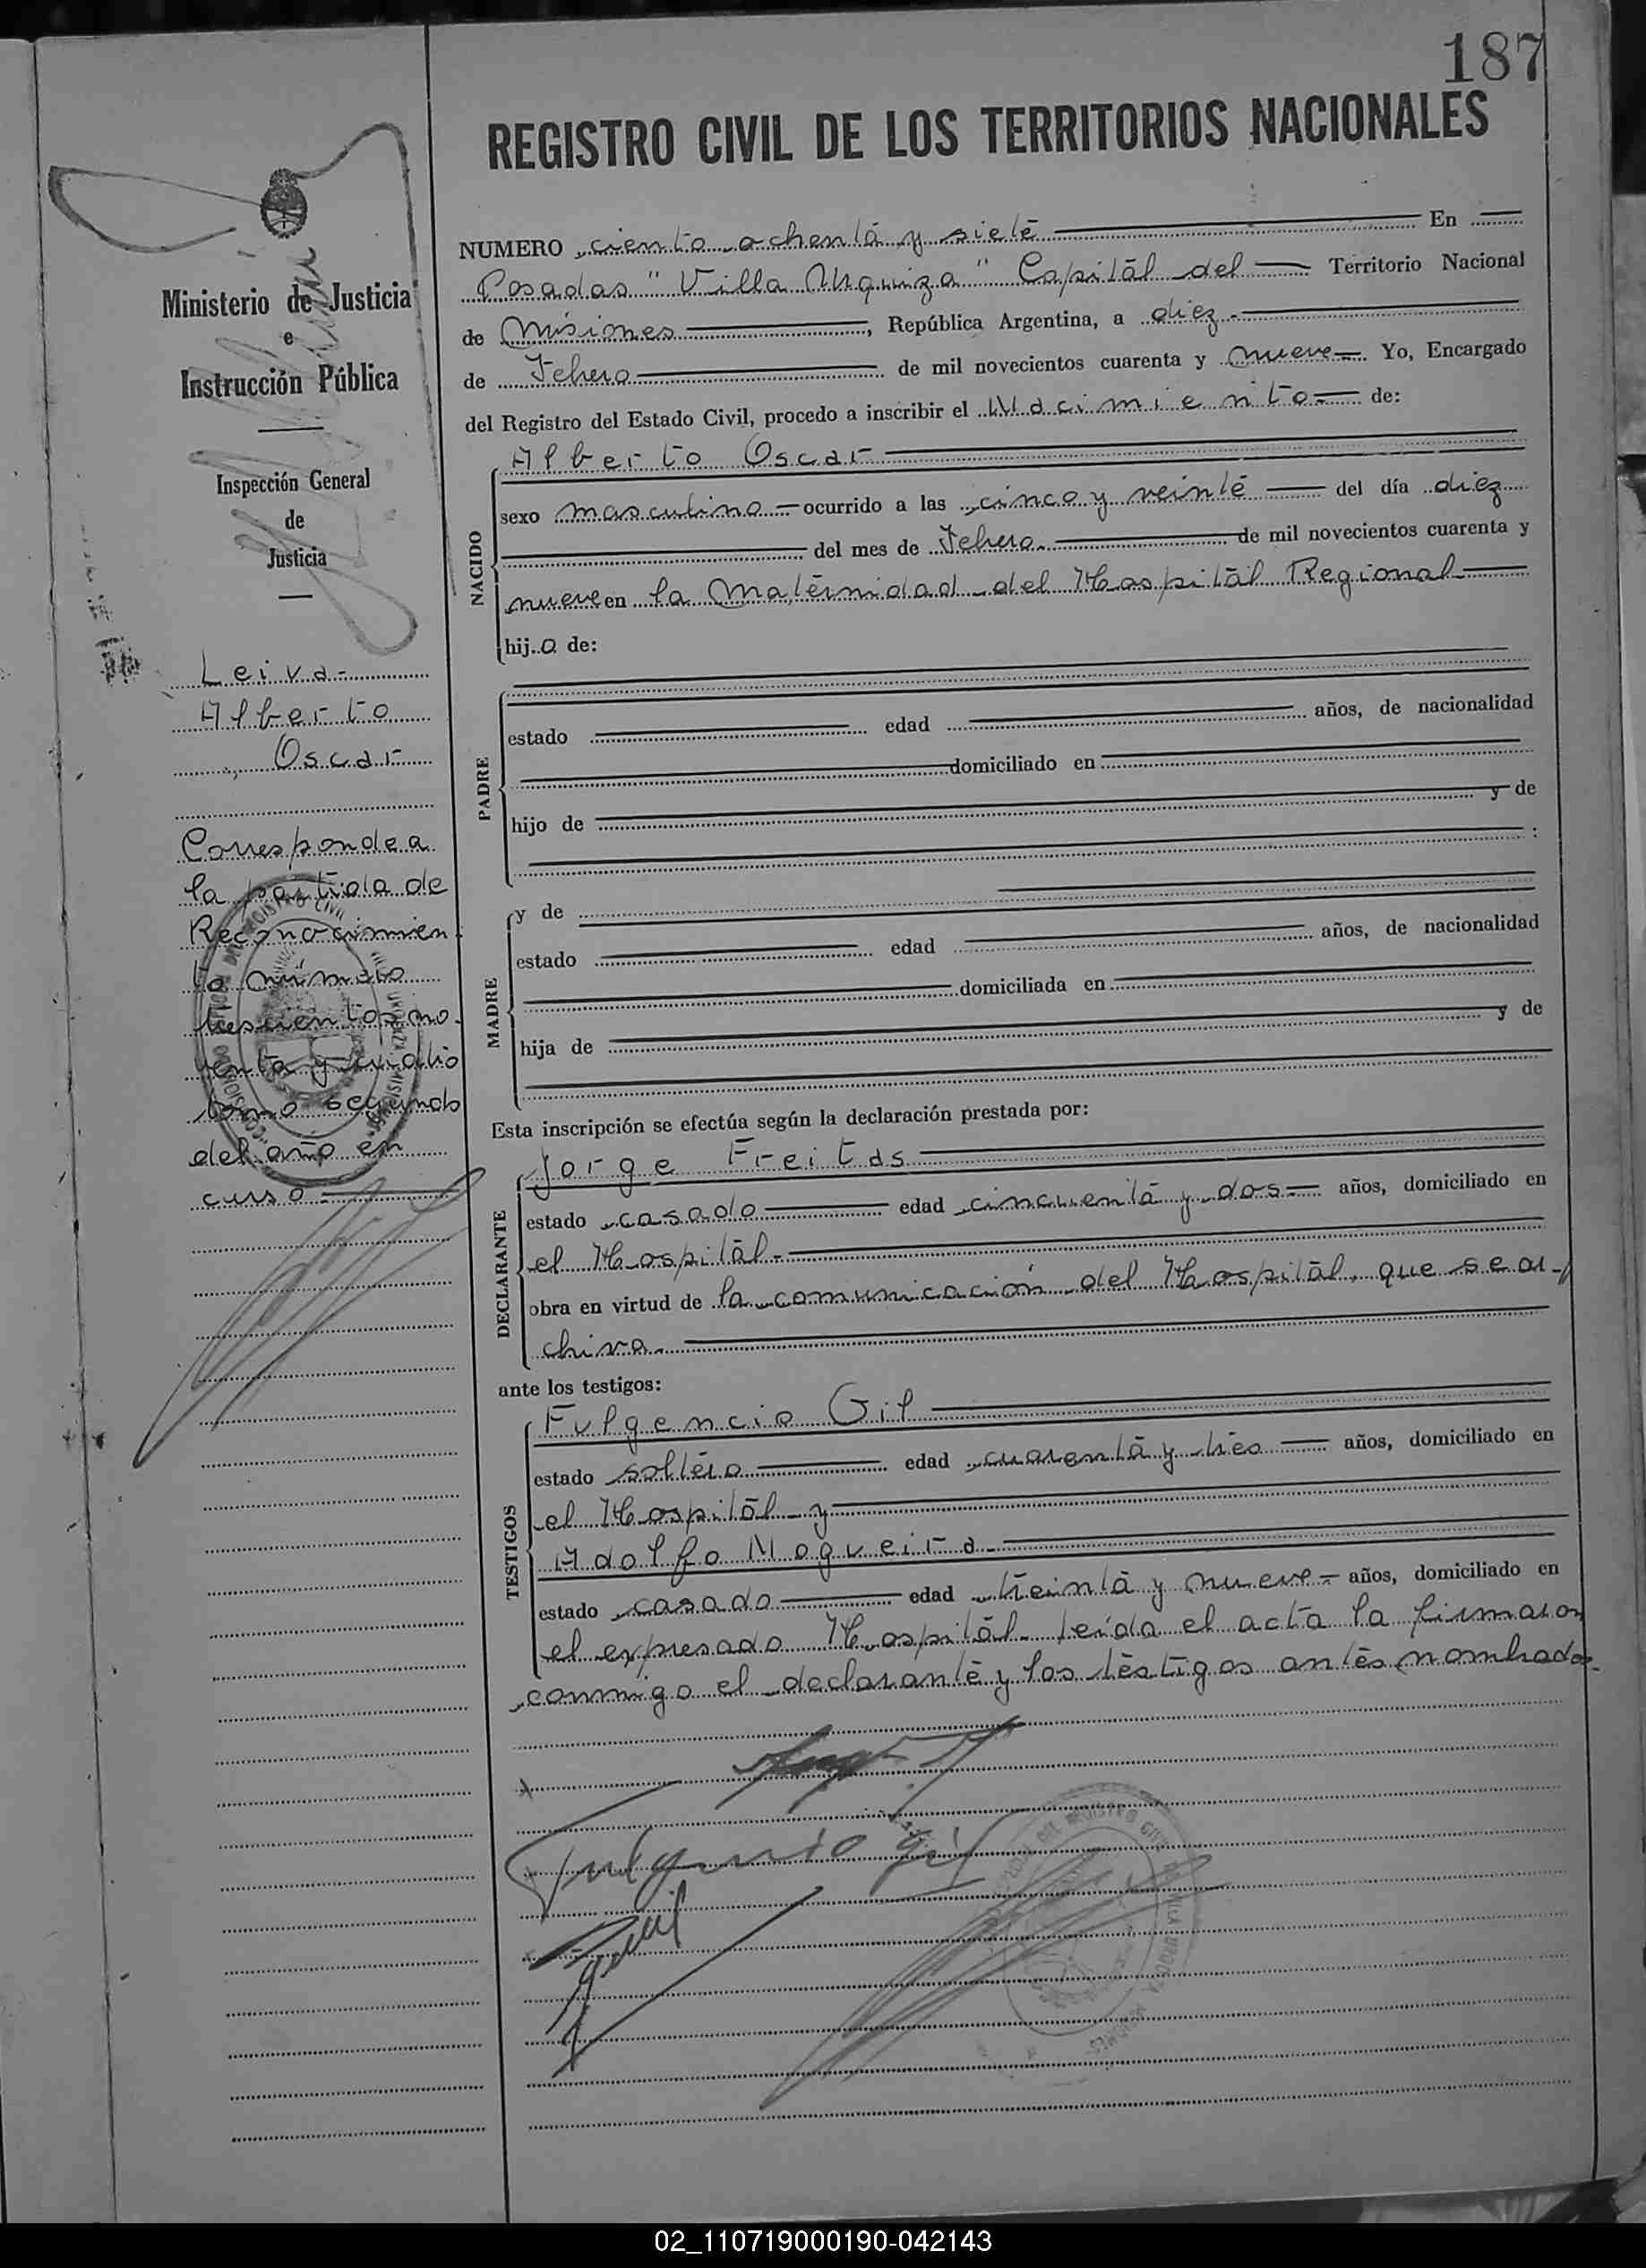 187
REGISTRO CIVIL DE LOS TERRITORIOS NACIONALES
Ministerio de Justicia
e
Instrucción Pública
Inspección General
de
Justicia
Leiva.-
Alberto
Oscar
Corresponde a
la partida de
Reconocimien-
to número
trescientos no-
venta y cuatro
tomo segundo
del año en
curso.
NUMERO ciento ochenta y siete En
Posadas "Villa Urquiza" Capital del Territorio Nacional
de Misiones, República Argentina, a diez.-
de Febrero de mil novecientos cuarenta y nueve. Yo, Encargado
del Registro del Estado Civil, procedo a inscribir el Nacimiento.- de:
NACIDO
Alberto Oscar
sexo masculino.- ocurrido a las cinco y veinte del día diez
del mes de Febrero. de mil novecientos cuarenta y
nueve en la Maternidad del Hospital Regional
hijo de:
PADRE
estado edad años, de nacionalidad
domiciliado en
hijo de y de
:
MADRE
y de
estado edad años, de nacionalidad
domiciliada en
hija de y de
Esta inscripción se efectúa según la declaración prestada por:
DECLARANTE
Jorge Freitas
estado casado edad cincuenta y dos.- años, domiciliado en
el Hospital.-
obra en virtud de la comunicación del Hospital, que se ar-
chiva.
ante los testigos:
TESTIGOS
Fulgencio Gil
estado soltero edad cuarenta y tres años, domiciliado en
el Hospital y
Adolfo Nogueira.
estado casado edad treinta y nueve.- años, domiciliado en
el expresado Hospital. Leída el acta la firmaron
conmigo el declarante y los testigos antes nombrados.
Fulgencio Gil
02_110719000190-042143